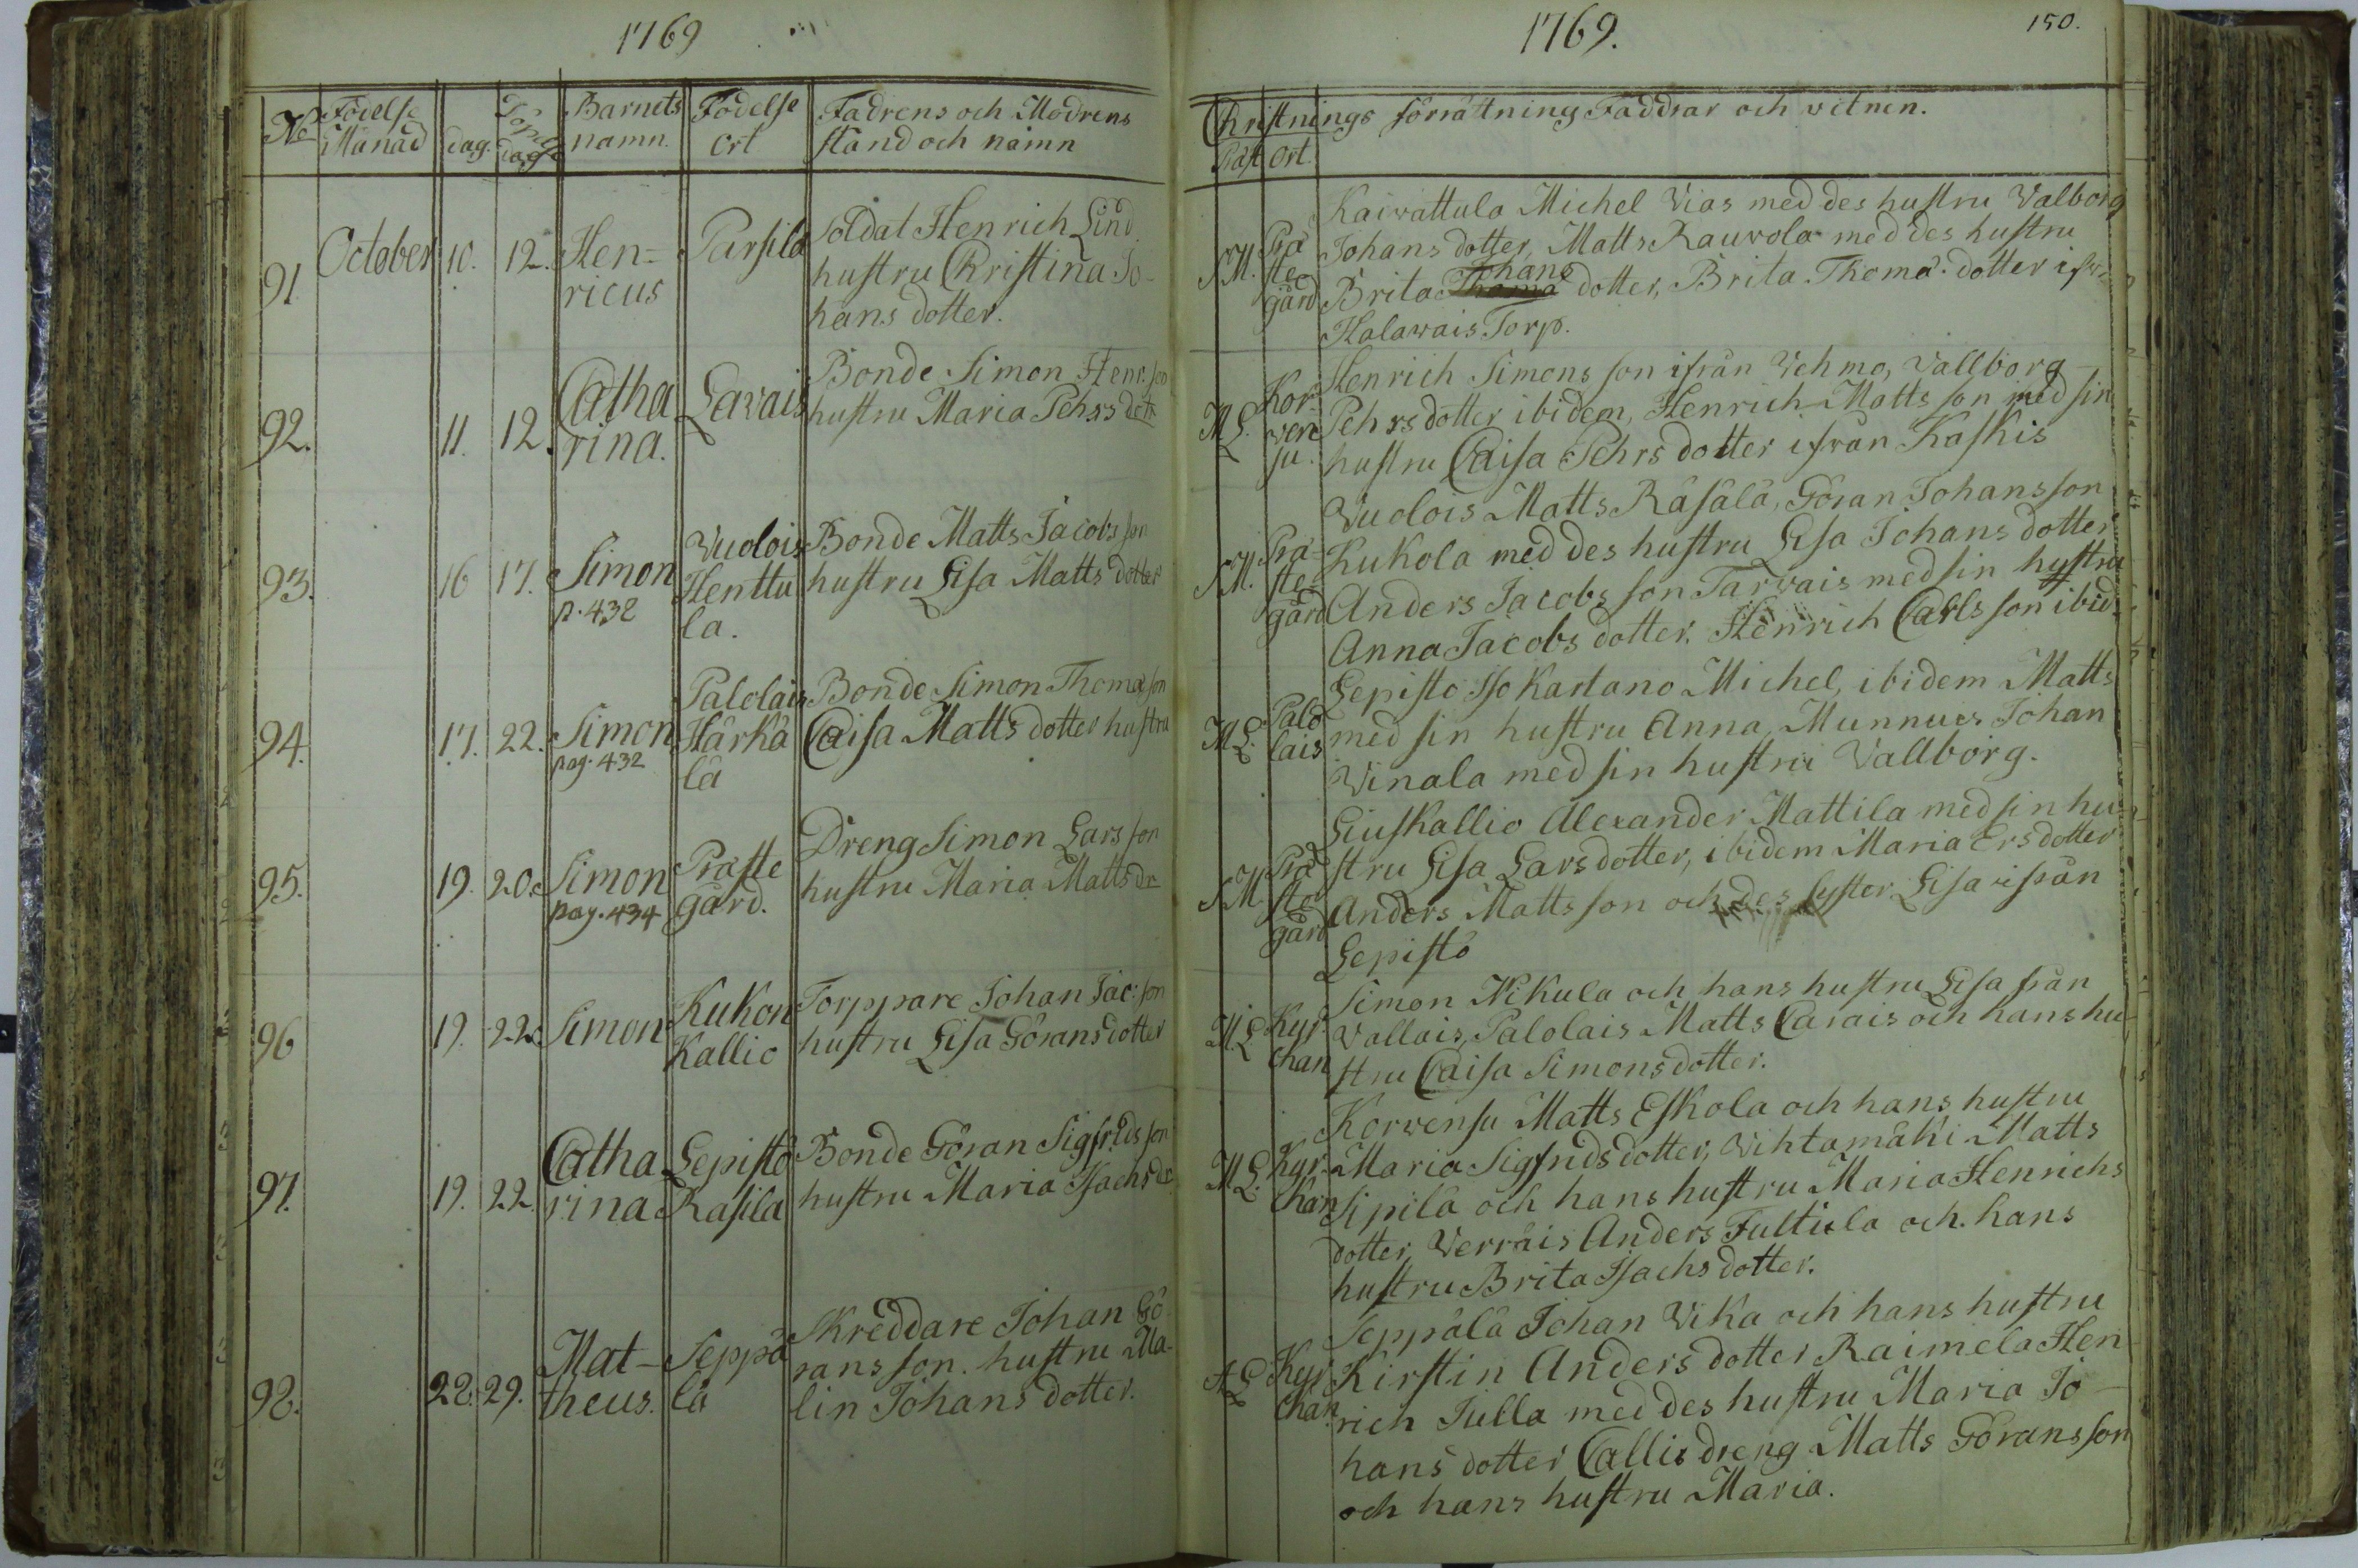 1769
No
Födelse
Månad
dag.
Döpelse
dag
Barnets
namn.
Födelse
ort
Fadrens och Modrens
stand och namn
91
October
10.
12.
Hen-
ricus
Parsila
Soldat Henrich Lind
hustru Christina Jo-
hans dotter.
92.
11.
12.
Catha
rina.
Lavais
Bonde Simon Henr.son
hustru Maria Pehrs dotr
93.
16
17.
Simon
p. 432
Vuolois
Henttu
la.
Bonde Matts Jacobs son
hustru Lisa Matts dotter
94.
17.
22.
Simon
pag. 432
Palolais
Härkä
lä
Bonde Simon Thomæson
Caisa Matts dotter hustru
95.
19.
20.
Simon
pag. 434
Präste
gård.
Dreng Simon Lars son
hustru Maria Matts dr
96
19.
22.
Simon
Kukon
Kallio
Torppare Johan Jac:son
hustru Lisa Görans dotter
97.
19.
22.
Catha
rina
Lepistö
Rasila
Bonde Göran Sigfrids son
hustru Maria Isachs dr
98.
28.
29.
Mat-
theus.
Seppä
lä
Skreddare Johan Gö-
rans son. hustru Ma-
lin Johans dotter.
1769.
150.
Christnings förrättning Faddrar och vitnen.
Präst
Ort.
S.M.
Prä
ste
gård
Kaivattula Michel Vias med des hustru Valborg
Johans dotter, Matts Rauvola med des hustru
Johans
Brita Thoma dotter, Brita Thomæ dotter ifrå
Halavais Torp.
M.L.
Kor
ven
su.
Henrich Simons son ifrån Vehmo, Vallborg
Pehrs dotter ibidem, Henrich Matts son med sin
hustru Caisa Pehrs dotter ifrån Kaskis
S.M.
Prä-
ste-
gård
Vuolois Matts Räsälä, Göran Johans son
Kukola med des hustru Lisa Johans dotter
Anders Jacobs son Tarvais med sin hustru
Anna Jacobs dotter. Henrich Carls son ibid.
M.L.
Palo
lais
Lepistö Iso Kartano Michel, ibidem Matts
med sin hustru Anna, Munnuis Johan
Vinala med sin hustru Vallborg.
S.M.
Prä
ste
gård
Liuskallio Alexander Mattila med sin hu
stru Lisa Lars dotter, ibidem Maria Ers dotter
Anders Matts son och des syster Lisa ifrån
Lepistö
M.L.
Kyr
chan
Simon Nikula och hans hustru Lisa från
Vallais, Palolais Matts Carais och hans hu-
stru Caisa Simons dotter.
M.L.
Kyr-
chan
Korvensu Matts Eskola och hans hustru
Maria Sigfrids dotter, Vihtamäki Matts
Sipilä och hans hustru Maria Henrichs
dotter, Verräis Anders Tultiila och hans
hustru Brita Isachs dotter.
Kyr
chan
Seppälä Johan Vika och hans hustru
Kirstin Anders dotter Raimela Hen-
rich Julla med des hustru Maria Jo-
hans dotter Callis dreng Matts Görans son
och hans hustru Maria.